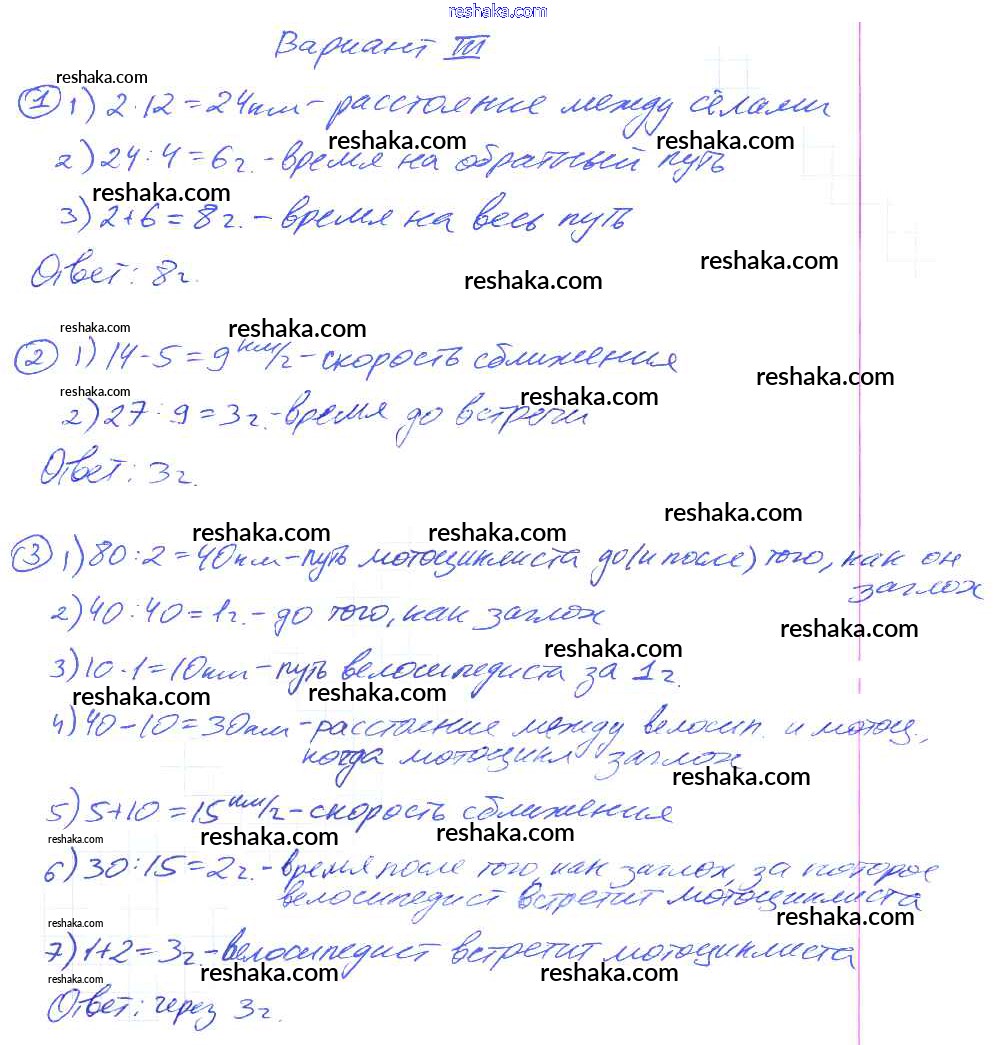 reshaka.com
Вариант III
reshaka.com
① 1) 2·12=24км-расстояние между сёлами
reshaka.com reshaka.com
2) 24:4=6г.-время на обратный путь
reshaka.com
3) 2+6=8г.-время на весь путь
reshaka.com
Ответ: 8г.
reshaka.com
reshaka.com reshaka.com
② 1) 14-5=9км/г-скорость сближения
reshaka.com
reshaka.com reshaka.com
2) 27:9=3г.-время до встречи
Ответ: 3г.
reshaka.com
reshaka.com reshaka.com
③ 1) 80:2=40км-путь мотоциклиста до(и после) того, как он
заглох
2) 40:40=1г.-до того, как заглох
reshaka.com
reshaka.com
3) 10·1=10км-путь велосипедиста за 1г.
reshaka.com reshaka.com
4) 40-10=30км-расстояние между велосип. и мотоц.,
когда мотоцикл заглох
reshaka.com
5) 5+10=15км/г-скорость сближения
reshaka.com reshaka.com reshaka.com
6) 30:15=2г.-время после того, как заглох, за которое
велосипедист встретит мотоциклиста
reshaka.com reshaka.com
7) 1+2=3г.-велосипедист встретит мотоциклиста
reshaka.com reshaka.com reshaka.com
Ответ: через 3г.